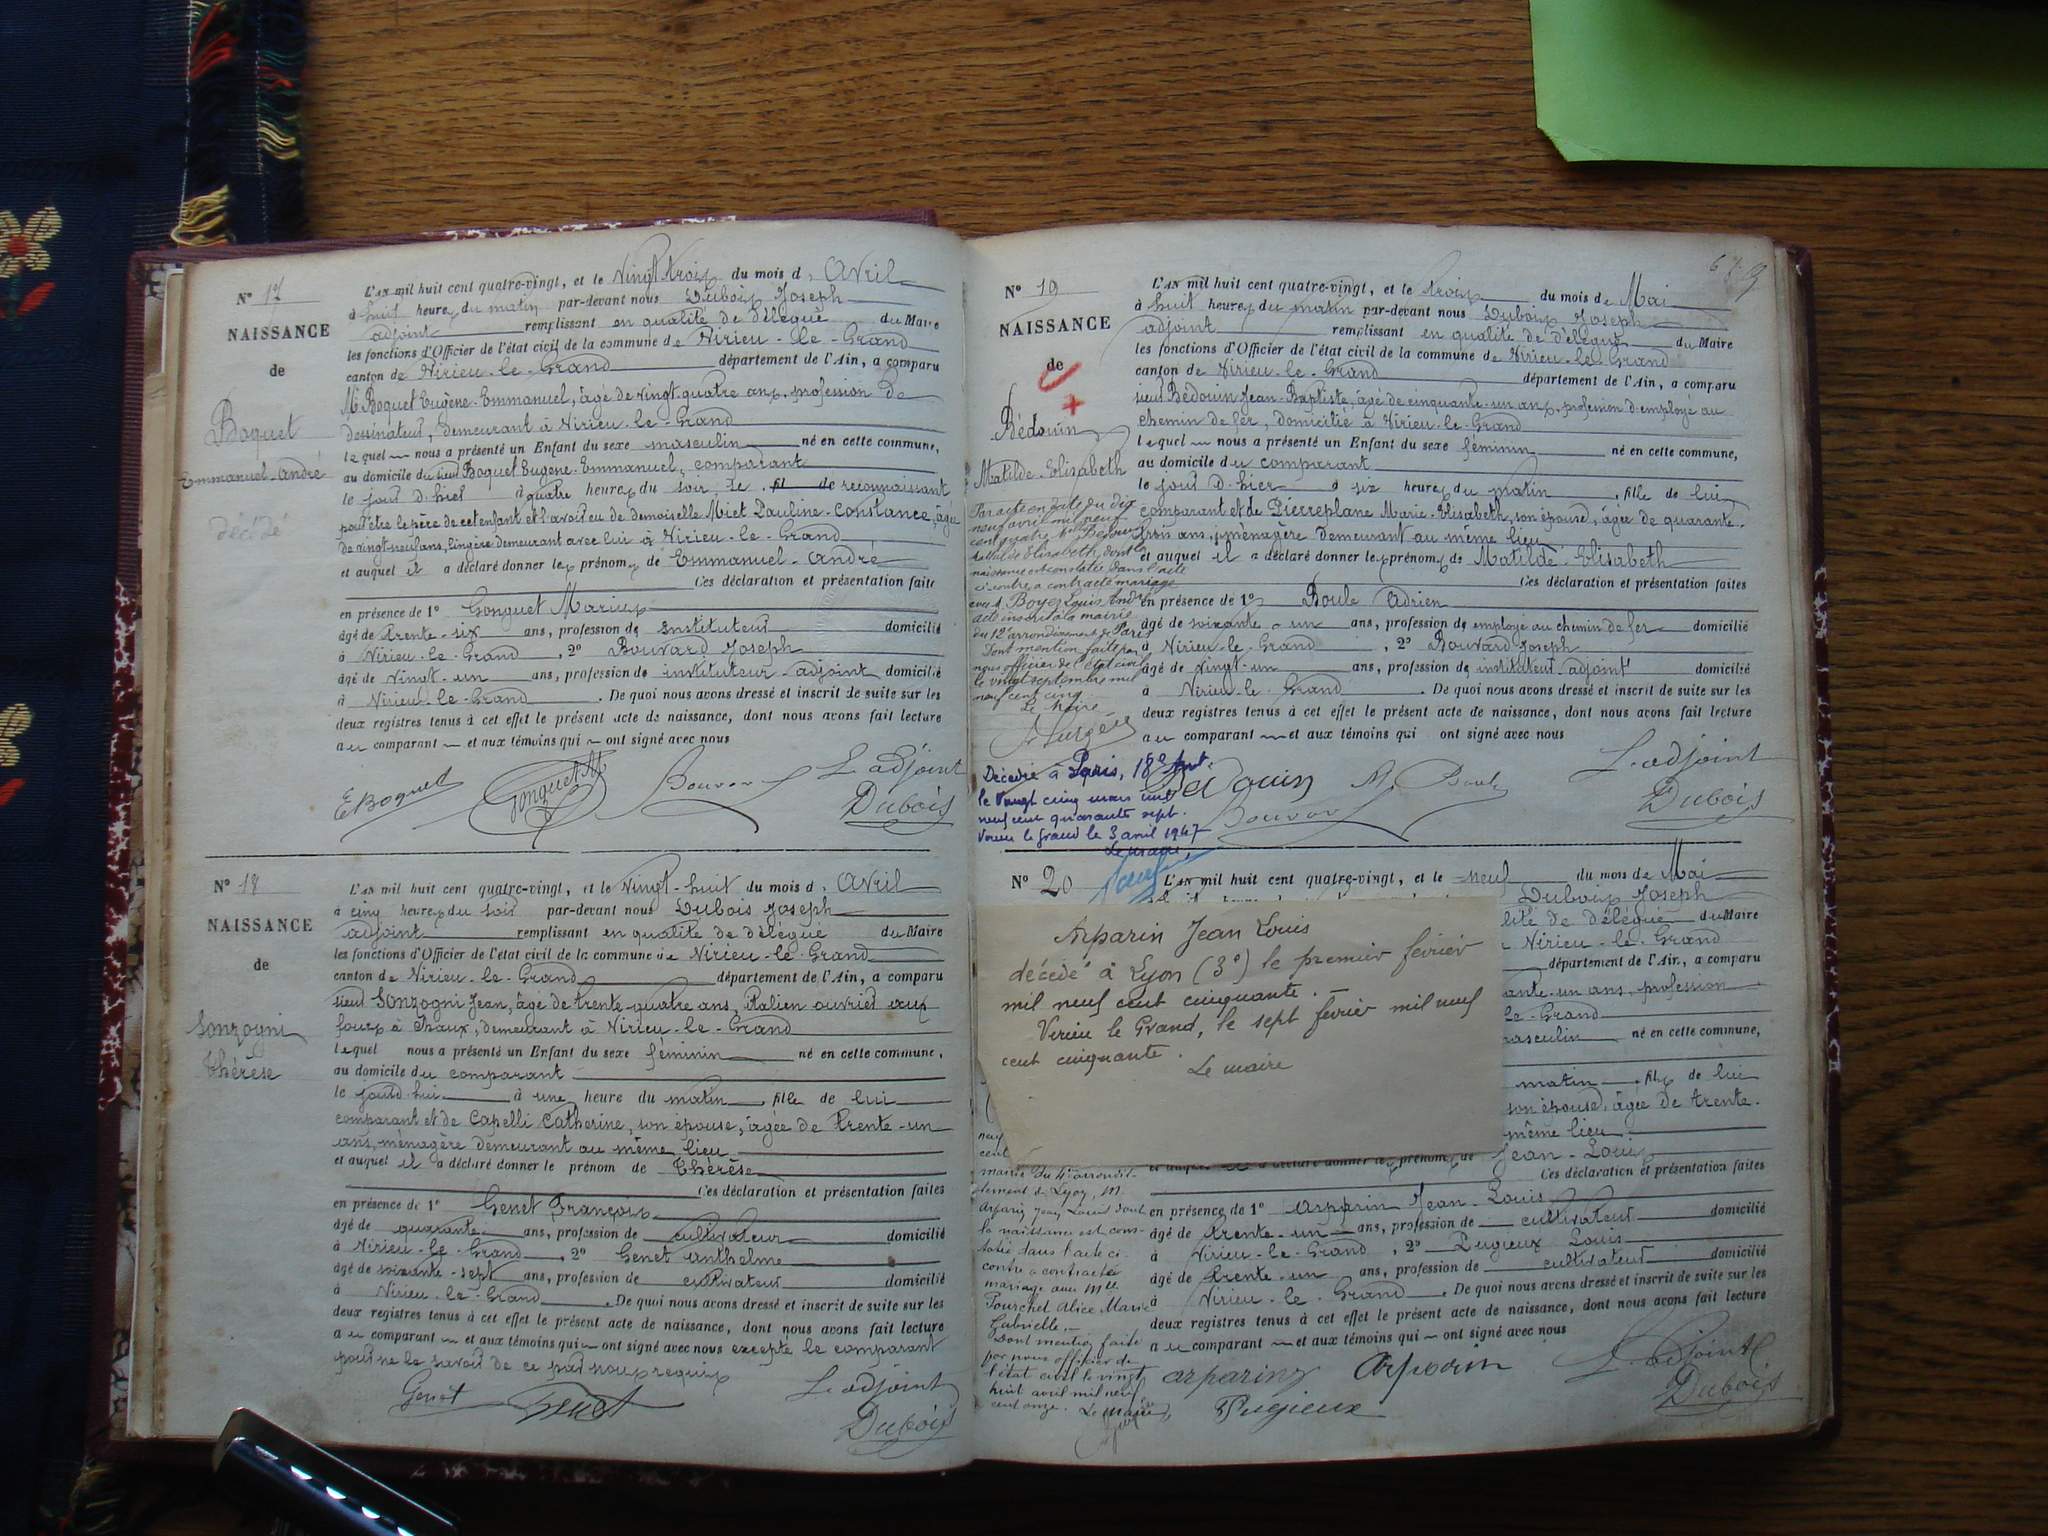 N° 17
NAISSANCE
de
Boquet
Emmanuel-André
décédé
L'AN mil huit cent quatre-vingt, et le Vingt trois du mois d'Avril
à huit heures du matin par-devant nous Dubois Joseph
adjoint remplissant en qualité de délégué du Maire
les fonctions d'Officier de l'état civil de la commune de Virieu-le-Grand
canton de Virieu-le-Grand département de l'Ain, a comparu
M. Boquet Eugène-Emmanuel, âgé de vingt-quatre ans, profession de
dessinateur, demeurant à Virieu-le-Grand
lequel nous a présenté un Enfant du sexe masculin né en cette commune,
au domicile du sieur Boquet Eugène-Emmanuel, comparant
le jour d'hier à quatre heures du soir, le reconnaissant
pour être le père de cet enfant et l'avoir eu de demoiselle Miet Pauline-Constance, âgée
de vingt-neuf ans, lingère demeurant avec lui à Virieu-le-Grand
et auquel il a déclaré donner les prénoms de Emmanuel-André
Ces déclaration et présentation faites
en présence de 1° Gonguet Marius
âgé de trente-six ans, profession de instituteur domicilié
à Virieu-le-Grand, 2° Bouvard Joseph
âgé de vingt-un ans, profession de instituteur-adjoint domicilié
à Virieu-le-Grand. De quoi nous avons dressé et inscrit de suite sur les
deux registres tenus à cet effet le présent acte de naissance, dont nous avons fait lecture
au comparant et aux témoins qui ont signé avec nous
E Boquet Gonguet M. Bouvard L'adjoint
Dubois
N° 18
NAISSANCE
de
Sonzogni
Thérèse
L'AN mil huit cent quatre-vingt, et le Vingt-huit du mois d'Avril
à cinq heures du soir par-devant nous Dubois Joseph
adjoint remplissant en qualité de délégué du Maire
les fonctions d'Officier de l'état civil de la commune de Virieu-le-Grand
canton de Virieu-le-Grand département de l'Ain, a comparu
sieur Sonzogni Jean, âgé de trente-quatre ans, italien ouvrier aux
fours à chaux, demeurant à Virieu-le-Grand
lequel nous a présenté un Enfant du sexe féminin né en cette commune,
au domicile du comparant
le jourd'hui à une heure du matin, fille de lui
comparant et de Capelli Catherine, son épouse, âgée de trente-un
ans, ménagère demeurant au même lieu
et auquel il a déclaré donner le prénom de Thérèse
Ces déclaration et présentation faites
en présence de 1° Genet François
âgé de quarante ans, profession de cultivateur domicilié
à Virieu-le-Grand, 2° Genet Anthelme
âgé de soixante-sept ans, profession de cultivateur domicilié
à Virieu-le-Grand. De quoi nous avons dressé et inscrit de suite sur les
deux registres tenus à cet effet le présent acte de naissance, dont nous avons fait lecture
au comparant et aux témoins qui ont signé avec nous excepté le comparant
pour ne le savoir de ce par nous requis
Genet Genet L'adjoint
Dubois
N° 19
NAISSANCE
de
Bédouin
Matilde-Elisabeth
Par acte en date du dix
neuf avril mil neuf
cent quatre Mlle Bedouin
Mathilde Elisabeth, dont la
naissance est constatée dans l'acte
ci-contre, a contracté mariage
avec M. Boyer Louis André
acte inscrit à la mairie
du 12e arrondissement de Paris
Dont mention faite par
nous officier de l'état civil
le vingt septembre mil
neuf cent cinq.
Le Maire
Décédée à Paris, 18e Art.
le vingt cinq mars mil
neuf cent quarante sept.
Virieu le Grand le 3 avril 1947
Le maire,
L'AN mil huit cent quatre-vingt, et le trois du mois de Mai
à huit heures du matin par-devant nous Dubois Joseph
adjoint remplissant en qualité de délégué du Maire
les fonctions d'Officier de l'état civil de la commune de Virieu-le-Grand
canton de Virieu-le-Grand département de l'Ain, a comparu
sieur Bédouin Jean-Baptiste, âgé de cinquante-un ans, profession d'employé au
chemin de fer, domicilié à Virieu-le-Grand
lequel nous a présenté un Enfant du sexe féminin né en cette commune,
au domicile du comparant
le jour d'hier à six heures du matin, fille de lui
comparant et de Pierreplane Marie-Elisabeth, son épouse, âgée de quarante-
trois ans, ménagère demeurant au même lieu
et auquel il a déclaré donner les prénoms de Matilde-Elisabeth
Ces déclaration et présentation faites
en présence de 1° Boule Adrien
âgé de soixante-un ans, profession de employé au chemin de fer domicilié
à Virieu-le-Grand, 2° Bouvard Joseph
âgé de vingt-un ans, profession de instituteur-adjoint domicilié
à Virieu-le-Grand. De quoi nous avons dressé et inscrit de suite sur les
deux registres tenus à cet effet le présent acte de naissance, dont nous avons fait lecture
au comparant et aux témoins qui ont signé avec nous
Bédouin A. Boule L'adjoint
Bouvard Dubois
N° 20
L'AN mil huit cent quatre-vingt, et le neuf du mois de Mai
Dubois Joseph
lité de délégué du Maire
Virieu-le-Grand
département de l'Ain, a comparu
ante-un ans, profession
le-Grand
masculin né en cette commune,
matin, fils de lui
son épouse, âgée de trente-
même lieu
et auquel il a déclaré donner les prénoms de Jean-Louis
Arparin Jean Louis
décédé à Lyon (3e) le premier février
mil neuf cent cinquante.
Virieu le Grand, le sept février mil neuf
cent cinquante.
Le maire
neuf
cent
mairie du 4e arrondis-
sement de Lyon, M.
Arparin Jean Louis dont
la naissance est cons-
tatée dans l'acte ci-
contre a contracté
mariage avec Mlle
Pourchet Alice Marie
Gabrielle.
Dont mention faite
par nous officier de
l'état civil le vingt
huit avril mil neuf
cent onze. Le Maire,
Ces déclaration et présentation faites
en présence de 1° Arparin Jean-Louis
âgé de trente-un ans, profession de cultivateur domicilié
à Virieu-le-Grand, 2° Pugieux Louis
âgé de trente-un ans, profession de cultivateur domicilié
à Virieu-le-Grand. De quoi nous avons dressé et inscrit de suite sur les
deux registres tenus à cet effet le présent acte de naissance, dont nous avons fait lecture
au comparant et aux témoins qui ont signé avec nous
arparin arparin L'adjoint
Pugieux Dubois